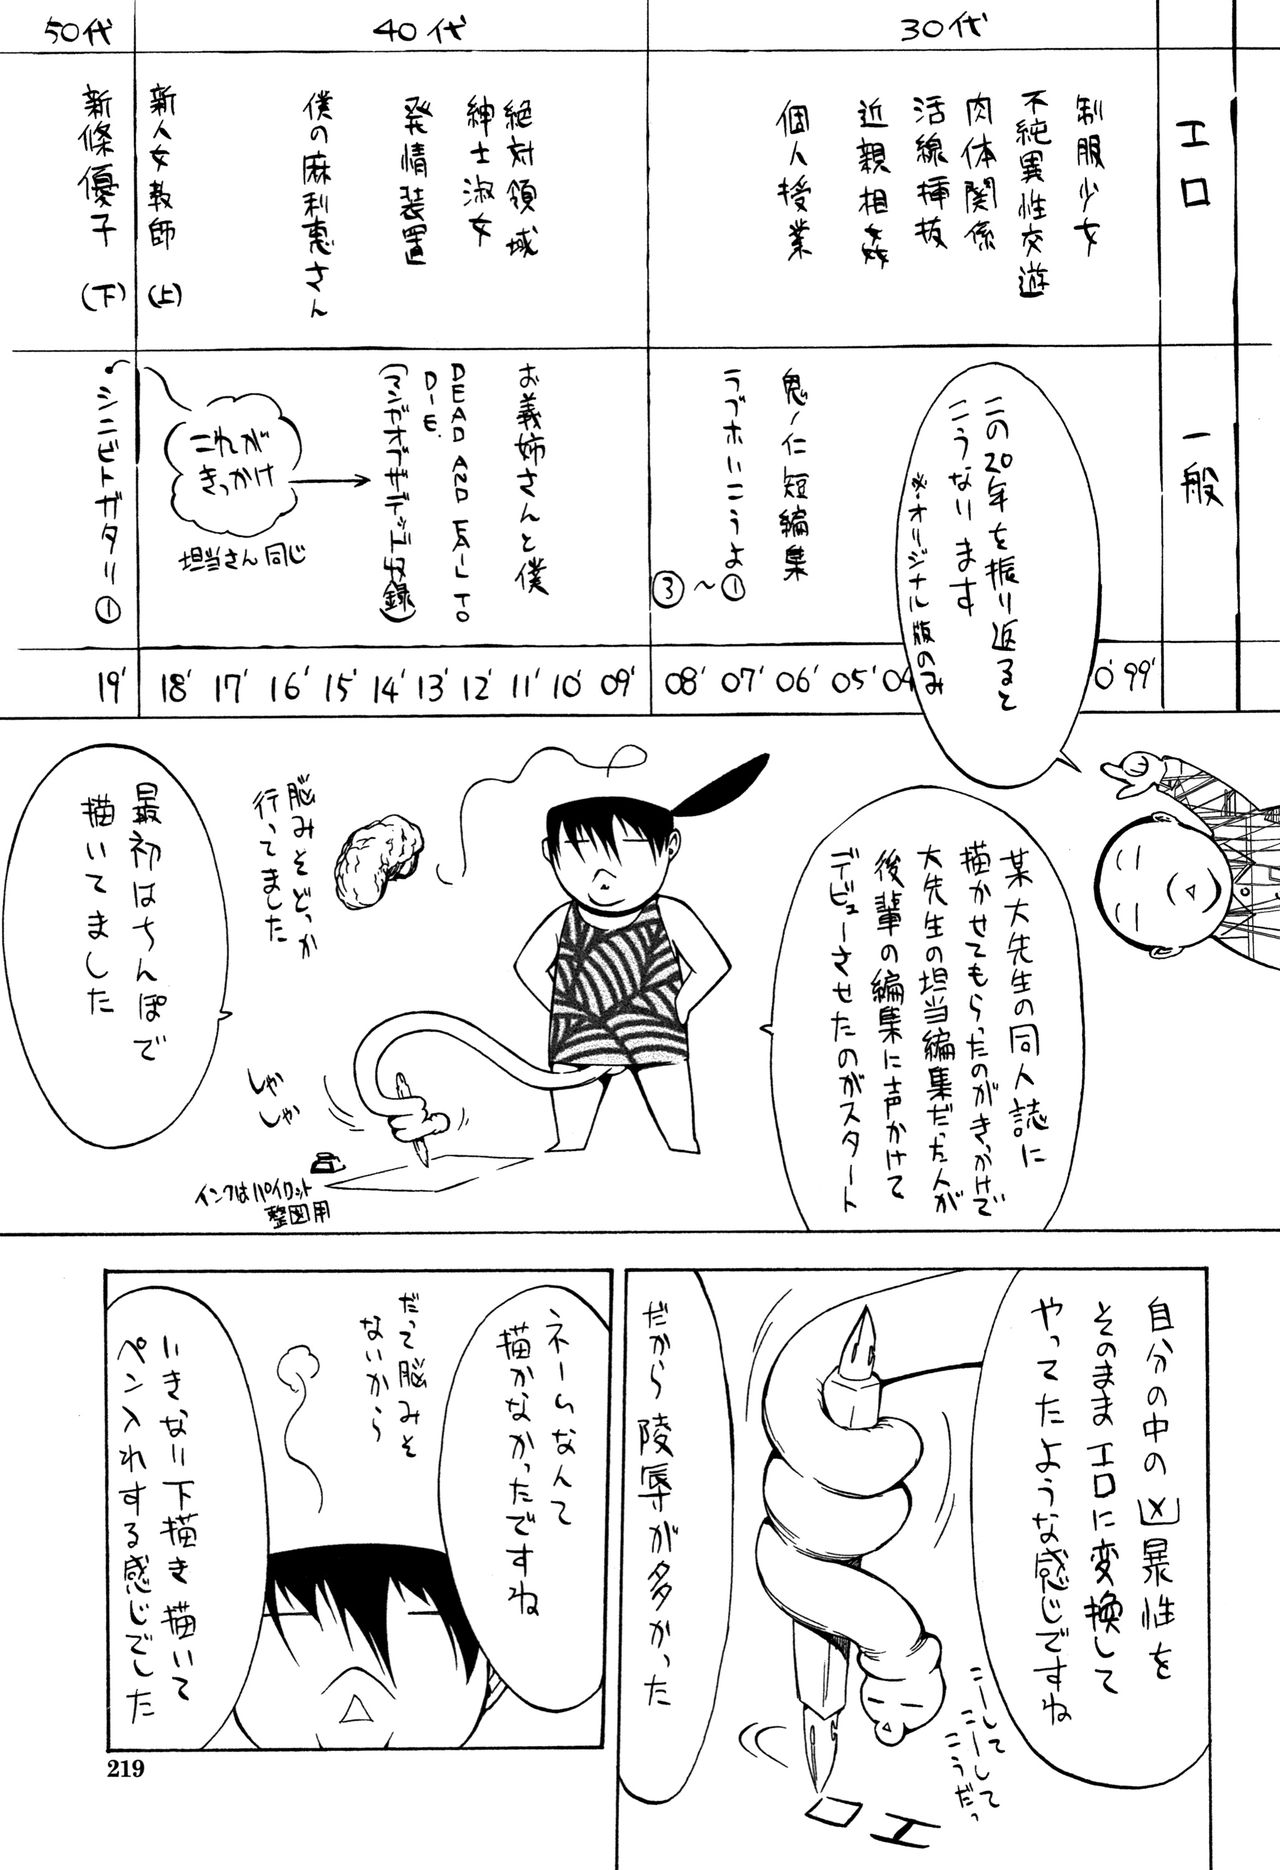 30代
40代
50代
エロ
制服少女
不純異性交遊
肉体関係
活線挿抜
近親相姦
個人授業
絶対領域
紳士淑女
発情装置
僕の麻利恵さん
新人女教師(上)
新條優子(下)
一般
鬼ノ仁短編集
ラブホいこうよ①～③
お義姉さんと僕
DEAD AND FAIL TO
DIE.
(マンガオブザデッド収録)
これが
きっかけ
担当さん同じ
シニビトガタリ①
この20年を振り返ると
こうなります
※オリジナル版のみ
19' 18' 17' 16' 15' 14' 13' 12' 11' 10' 09' 08' 07' 06' 05' 04 0' 99'
某大先生の同人誌に
描かせてもらったのがきっかけで
大先生の担当編集だった人が
後輩の編集に声かけて
デビューさせたのがスタート
脳みそどっか
行ってました
最初はちんぽで
描いてました
しゃか
しゃか
インクはパイロット
製図用
自分の中の凶暴性を
そのままエロに変換して
やってたような感じですね
こーして
こーして
こうだっ
エロ
だから陵辱が多かった
ネームなんて
描かなかったですね
だって脳みそ
ないから
いきなり下描き描いて
ペン入れする感じでした
219